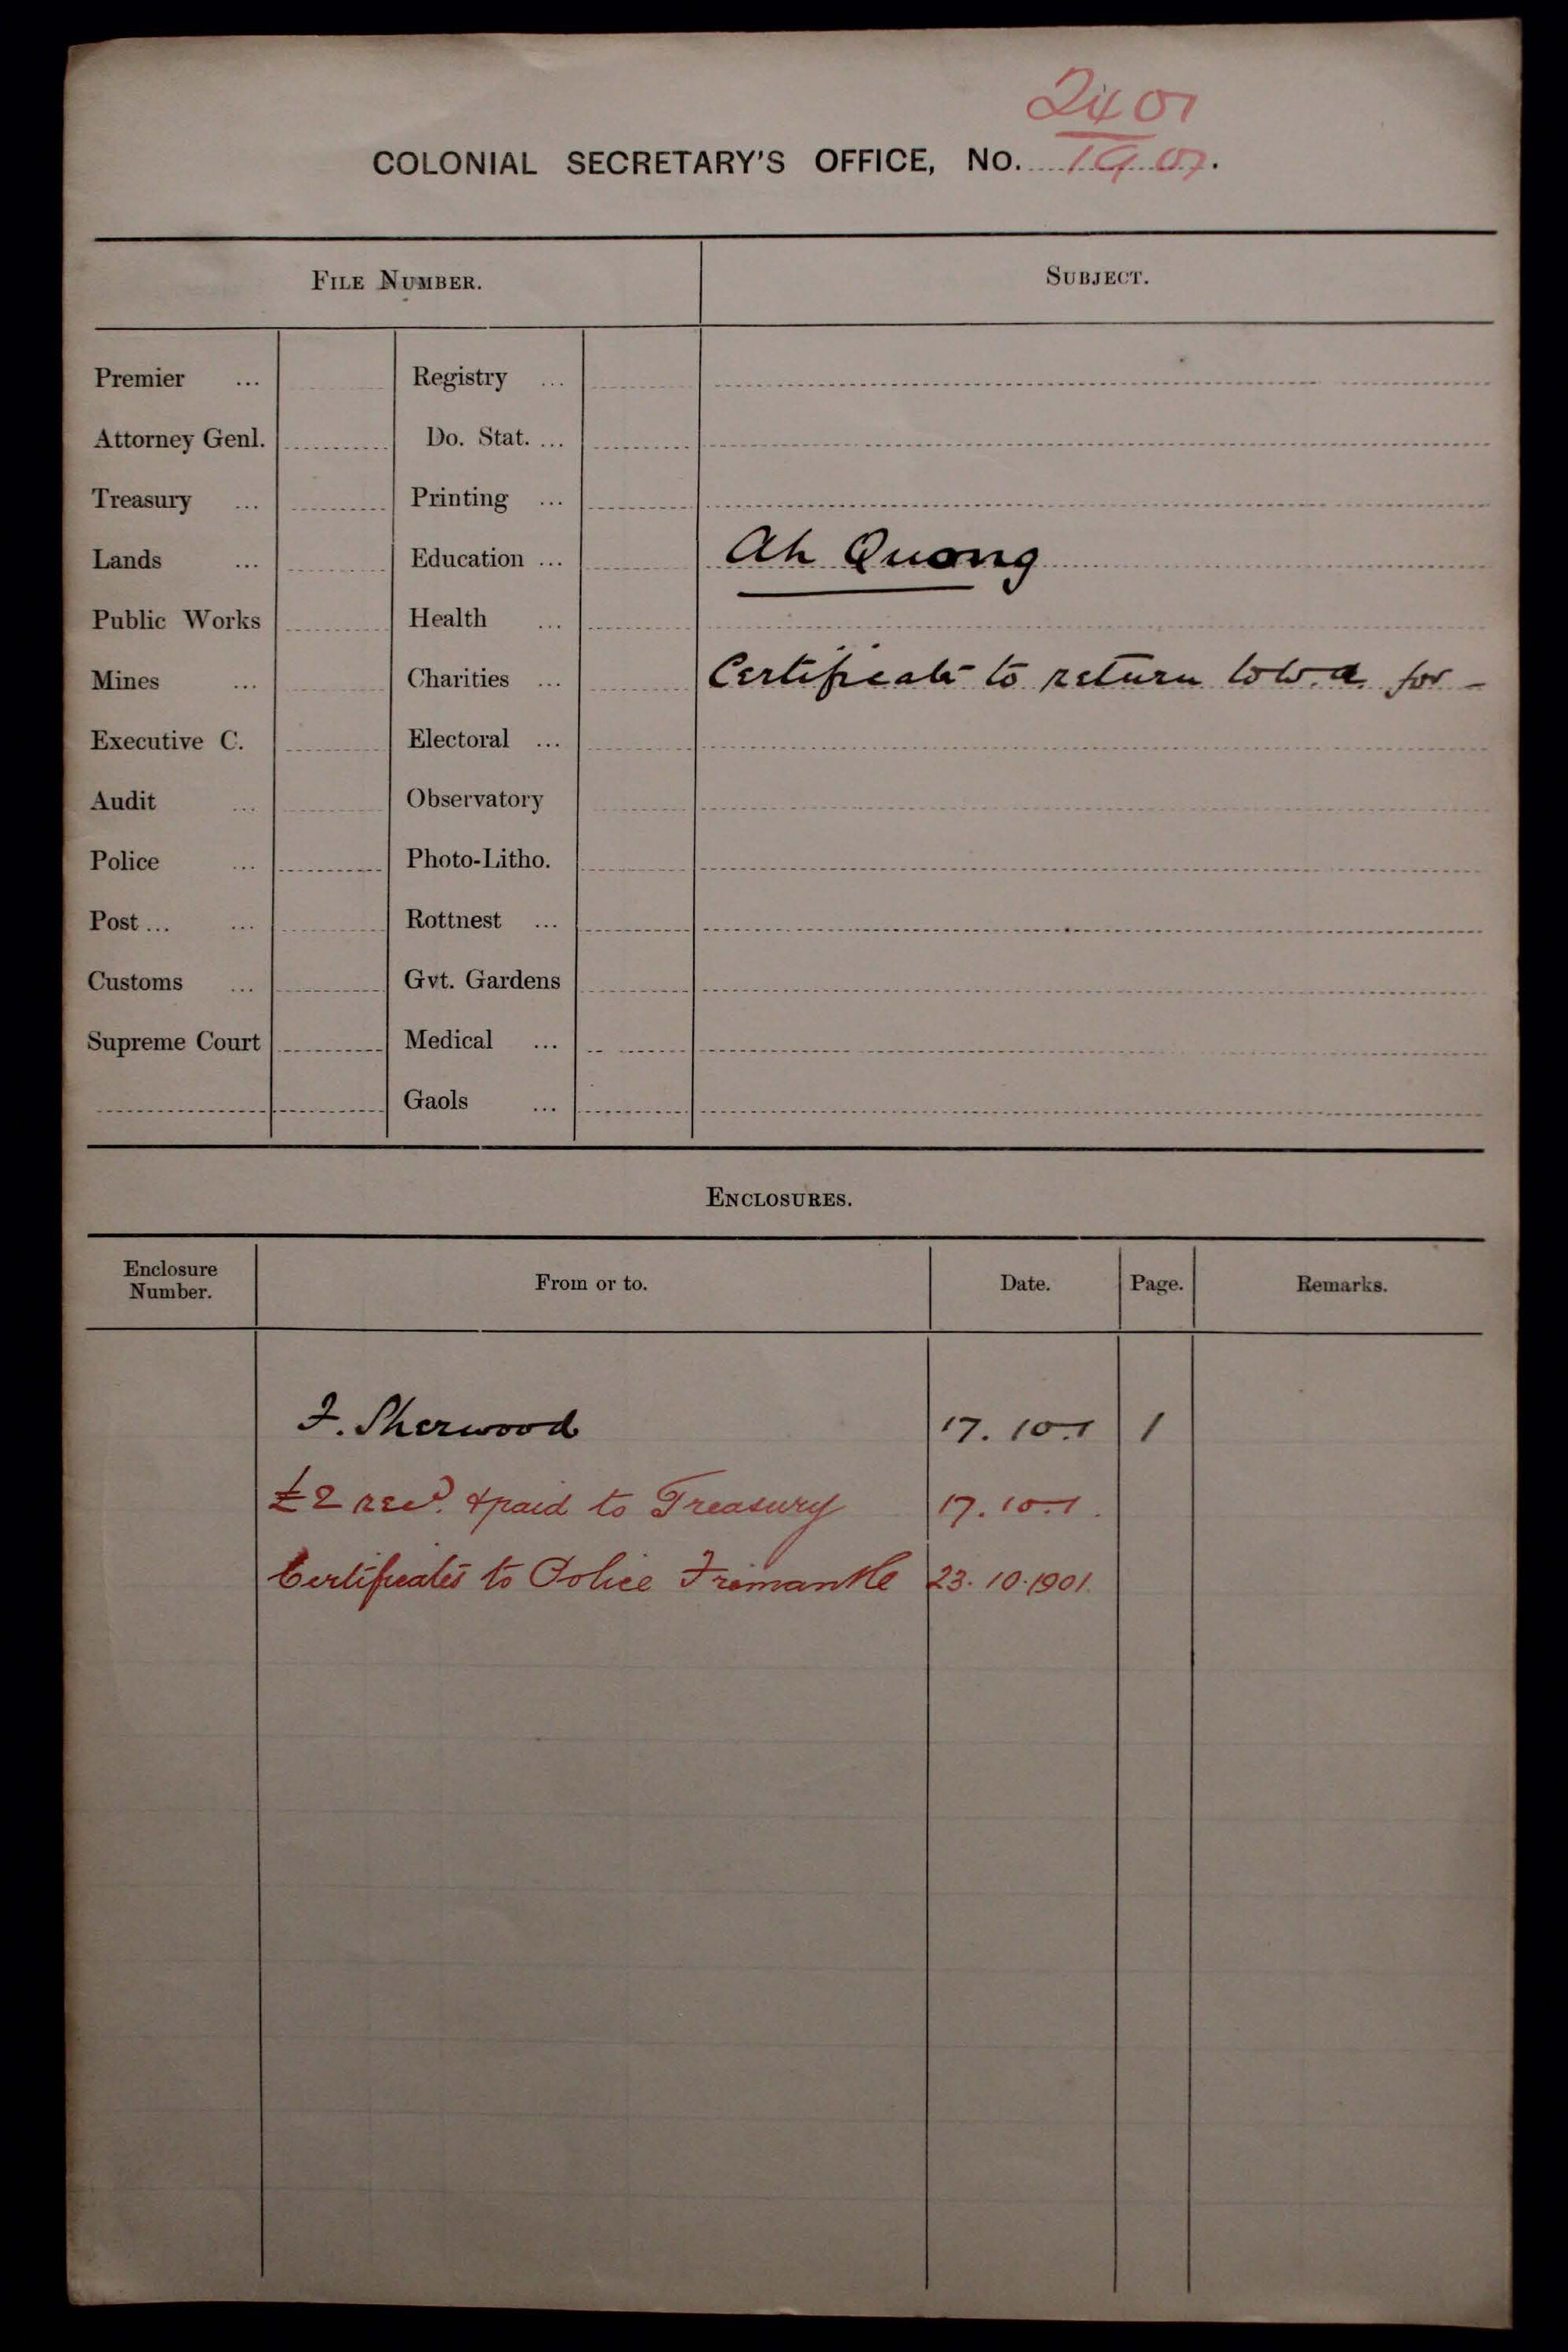 2401
COLONIAL SECRETARY'S OFFICE, NO. 1901.
FILE NUMBER.
SUBJECT.
Premier ... Registry ...
Attorney Genl. Do. Stat. ...
Treasury ... Printing ...
Lands ... Education ... Ah Quong
Public Works Health ...
Mines ... Charities ... Certificate to return to W.A. for -
Executive C. Electoral ...
Audit ... Observatory
Police ... Photo-Litho.
Post ... ... Rottnest ...
Customs ... Gvt. Gardens
Supreme Court Medical ...
Gaols ...
ENCLOSURES.
Enclosure Number. From or to. Date. Page. Remarks.
F. Sherwood 17.10.1 1
£2 recd. & paid to Treasury 17.10.1.
Certificates to Police Fremantle 23.10.1901.